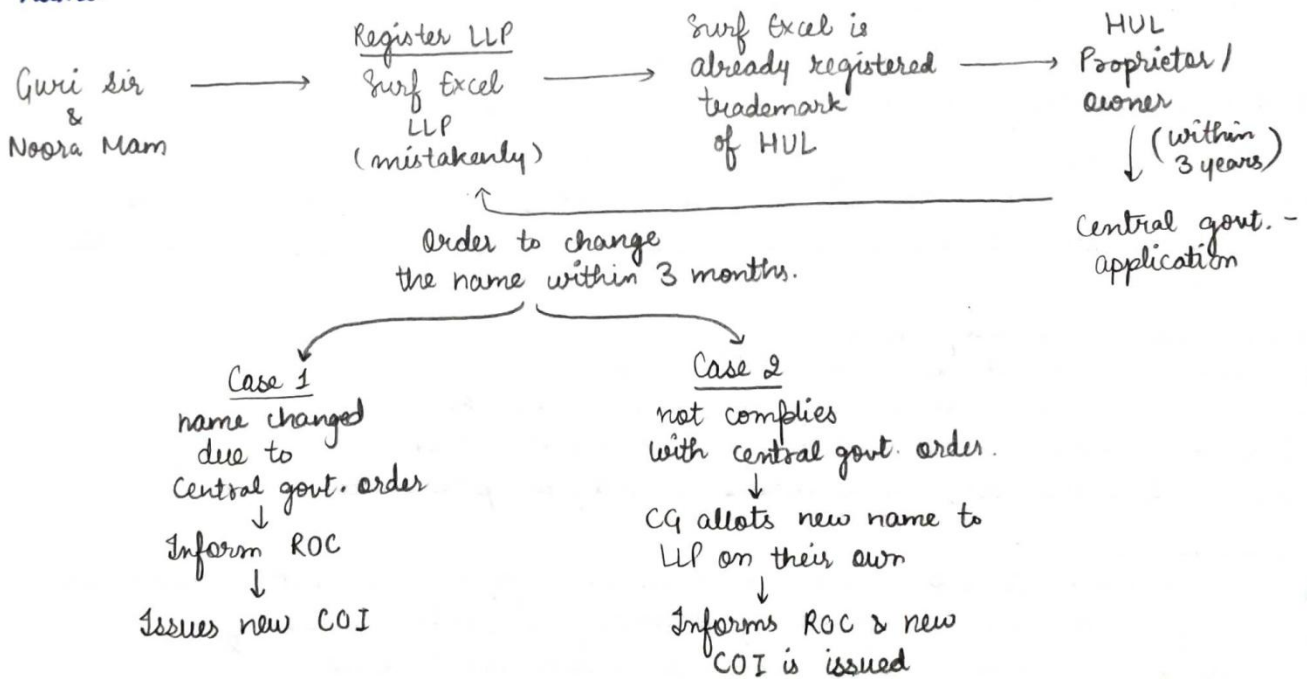 Guri Sir
&
Noora Mam
Register LLP
Surf Excel
LLP
(mistakenly)
Surf Excel is
already registered
trademark
of HUL
HUL
Proprietor/
owner
(within
3 years)
Central govt. -
application
Order to change
the name within 3 months.
Case 1
name changed
due to
Central govt. order
Inform ROC
Issues new COI
Case 2
not complies
with central govt. order.
CG allots new name to
LLP on their own
Informs ROC & new
COI is issued